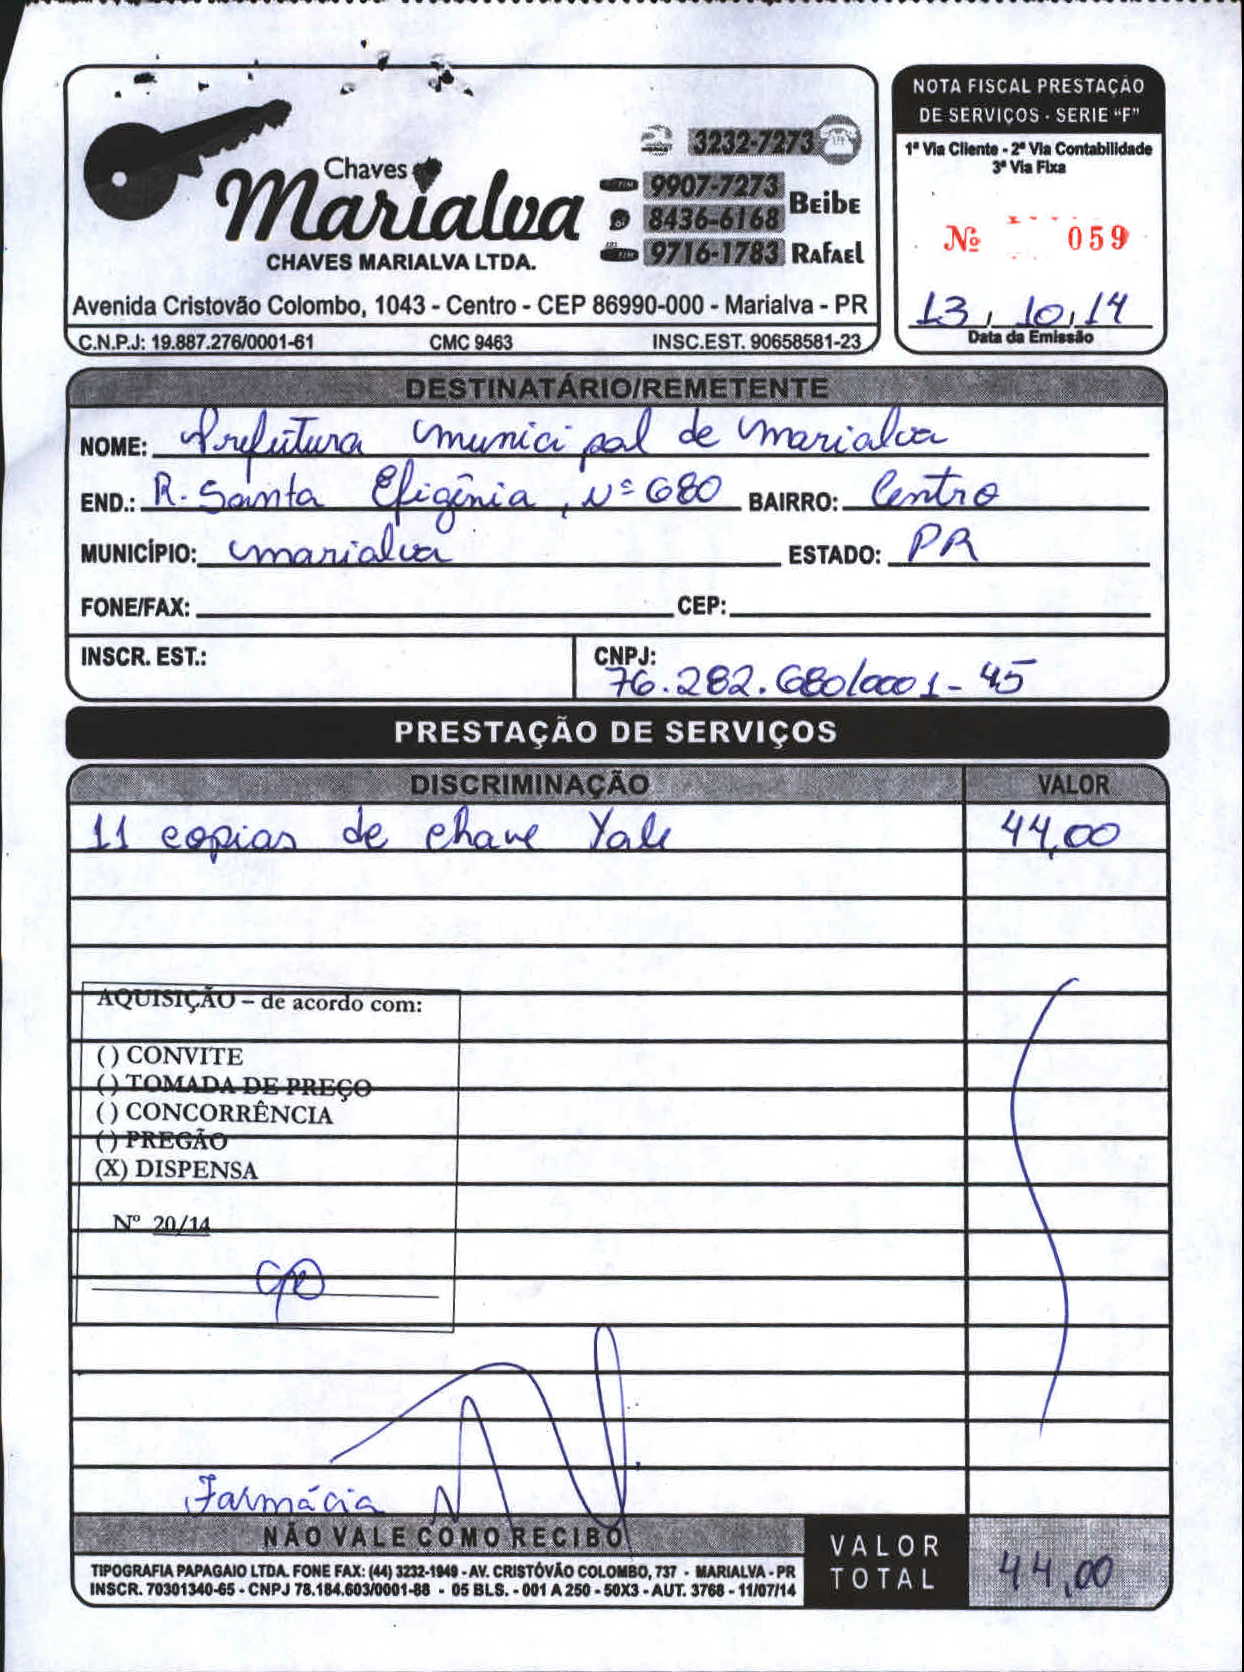 Chaves
Marialva
CHAVES MARIALVA LTDA.
3232-7273
9907-7273
8436-6168 Beibe
9716-1783 Rafael
Avenida Cristovão Colombo, 1043 - Centro - CEP 86990-000 - Marialva - PR
C.N.P.J: 19.887.276/0001-61 CMC 9463 INSC.EST. 90658581-23
NOTA FISCAL PRESTAÇÃO
DE SERVIÇOS - SERIE “F”
1ª Via Cliente - 2ª Via Contabilidade
3ª Via Fixa
Nº 059
13, 10, 14
Data da Emissão
DESTINATÁRIO/REMETENTE
NOME: Prefeitura Municipal de Marialva
END.: R. Santa Efigênia, Nº 680 BAIRRO: Centro
MUNICÍPIO: Marialva ESTADO: PR
FONE/FAX: CEP:
INSCR. EST.: CNPJ: 76.282.680/0001-45
PRESTAÇÃO DE SERVIÇOS
DISCRIMINAÇÃO VALOR
11 copias de chave Yale 44,00
AQUISIÇÃO – de acordo com:
( ) CONVITE
( ) TOMADA DE PREÇO
( ) CONCORRÊNCIA
( ) PREGÃO
(X) DISPENSA
Nº 20/14
Farmácia
NÃO VALE COMO RECIBO
VALOR TOTAL 44,00
TIPOGRAFIA PAPAGAIO LTDA. FONE FAX: (44) 3232-1949 - AV. CRISTÓVÃO COLOMBO, 737 - MARIALVA - PR
INSCR. 70301340-65 - CNPJ 78.184.603/0001-88 - 05 BLS. - 001 A 250 - 50X3 - AUT. 3768 - 11/07/14